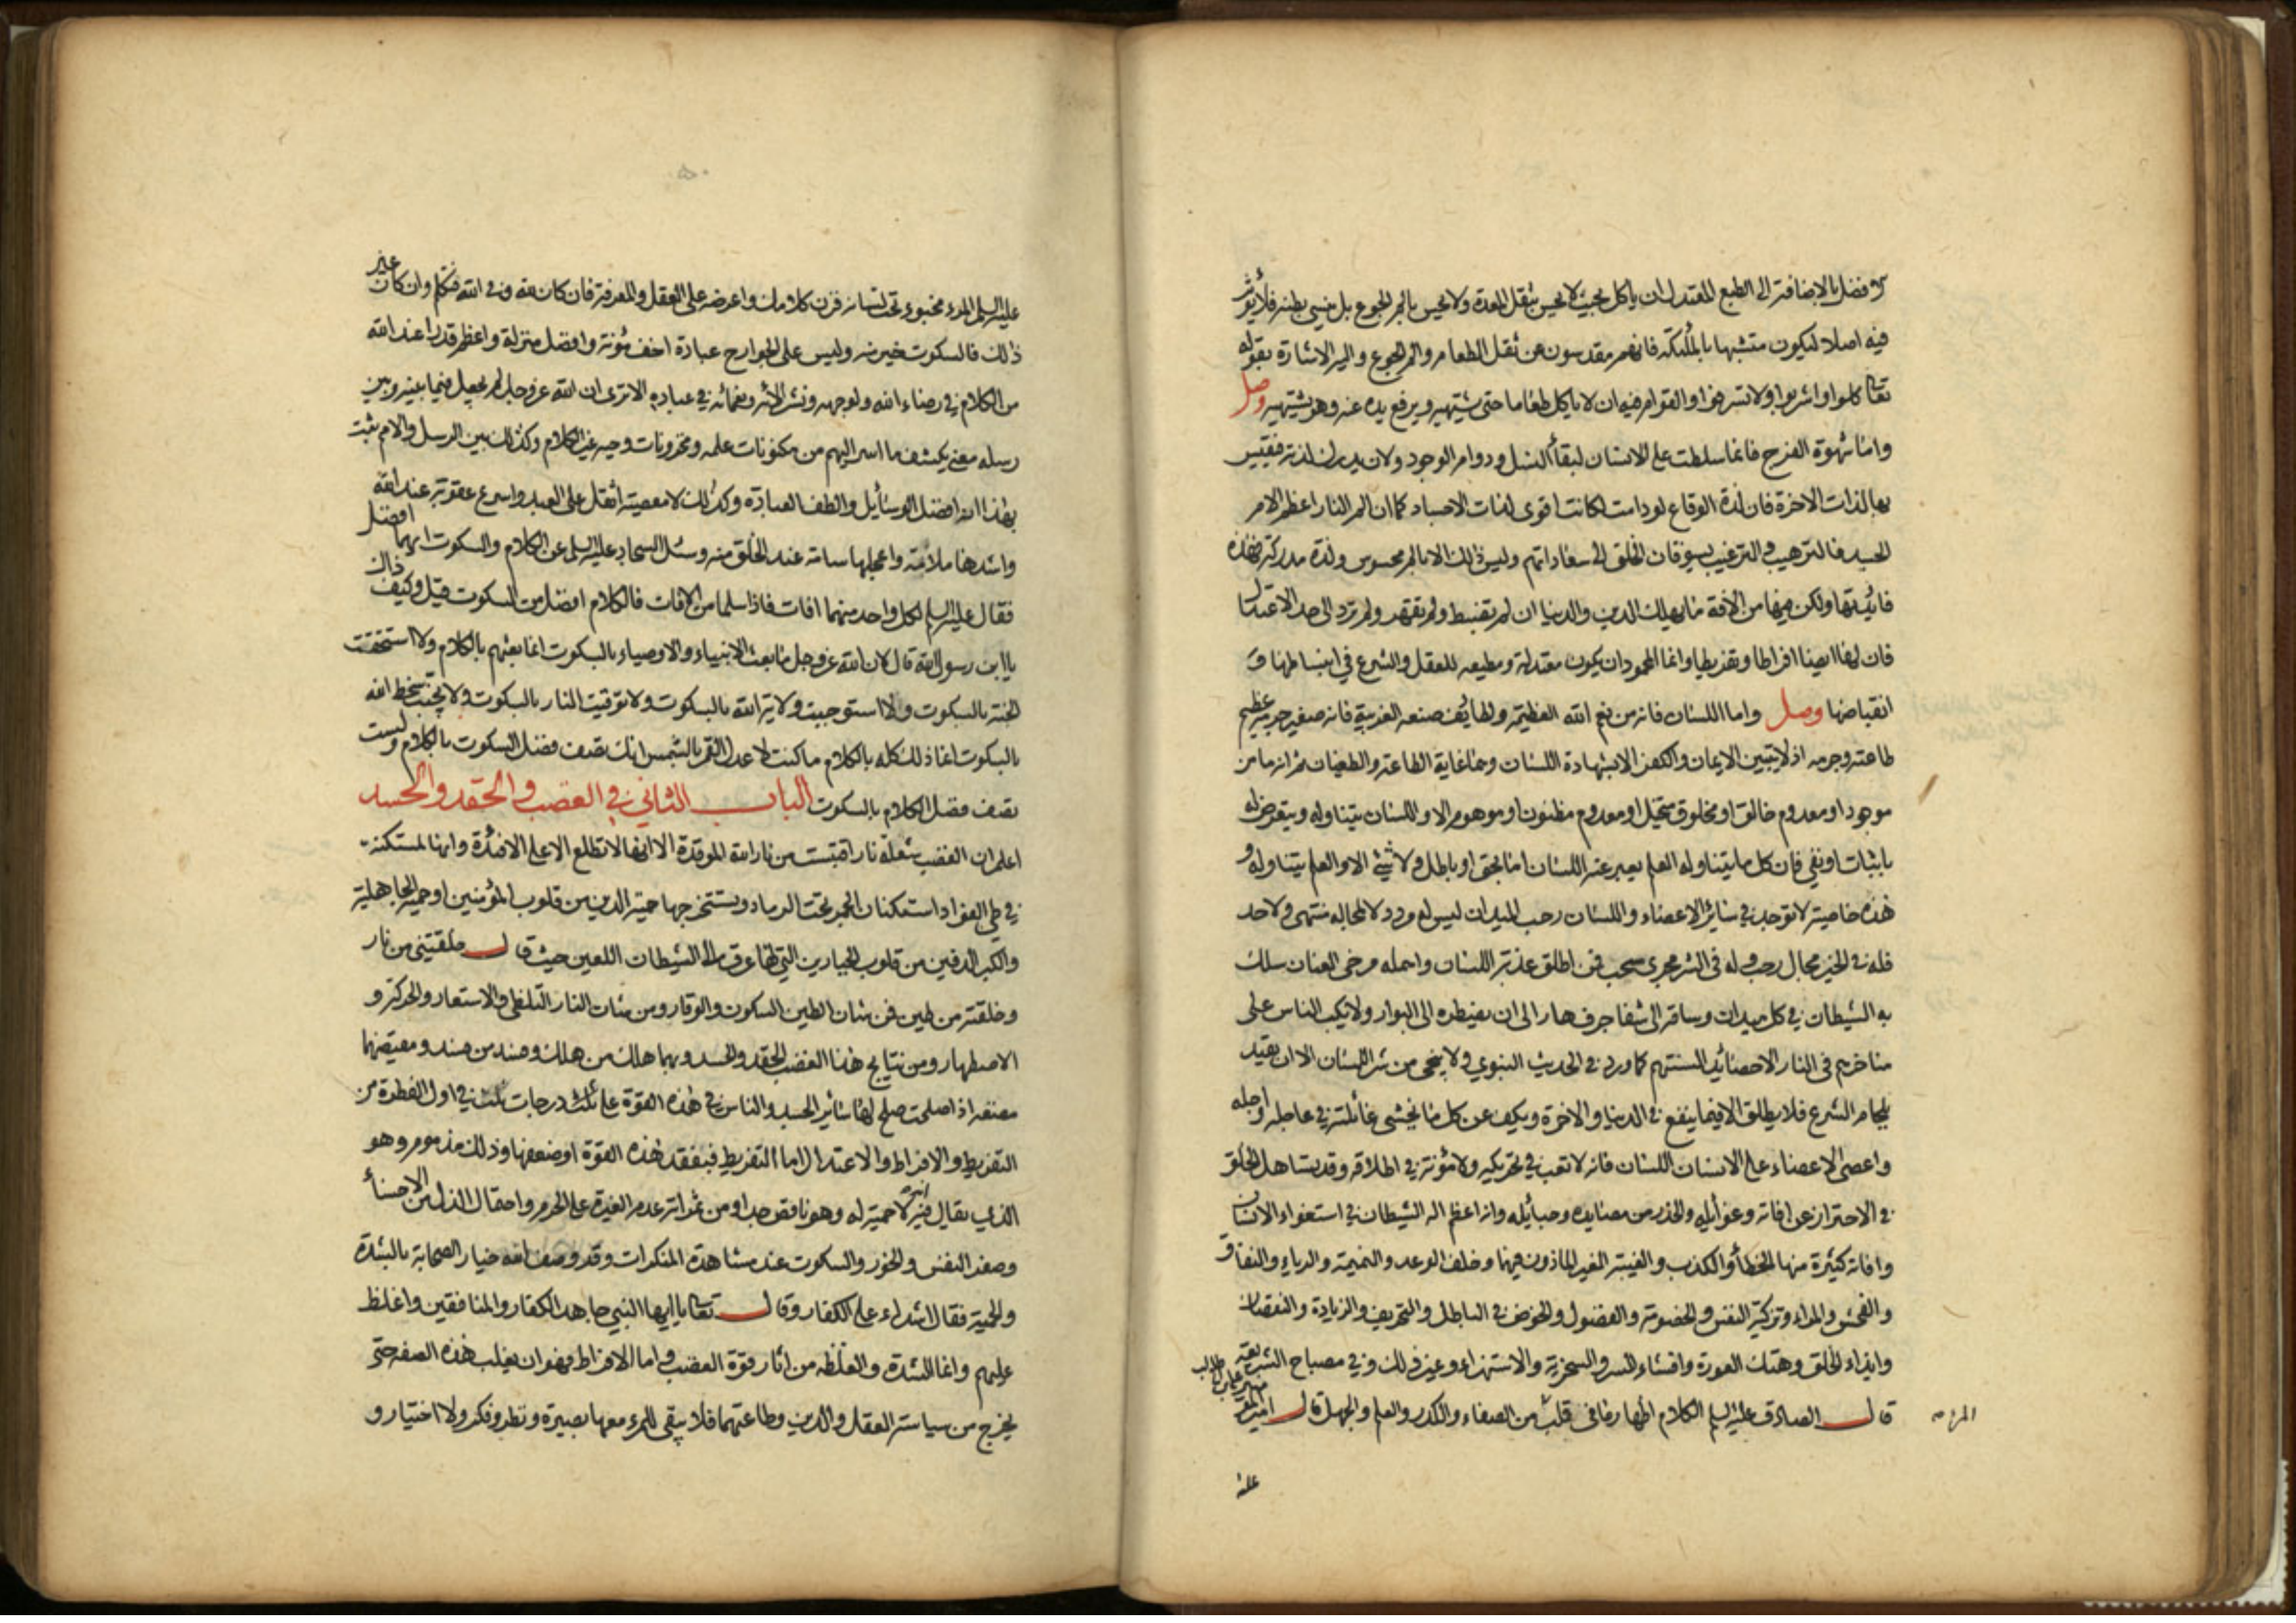 فضل بالاضافة الى الطبع المعتدل ان ياكل بحيث لا يحس بثقل المعدة ولا يحس بالم الجوع بل ينسى بطنه فلا يؤثر
فيه اصلا ليكون متشبها بالملئكة فانهم مقدسون عن ثقل الطعام والم الجوع واليه الاشارة بقوله
تعالى كلوا واشربوا ولا تسرفوا والقوام فيه ان لا ياكل طعاما حتى يشتهيه ويرفع يده عنه وهو يشتهيه وصل
واما شهوة الفرج فانما سلطت على الانسان لبقاء النسل ودوام الوجود ولان يدرك لذته فيقيس
بها لذات الاخرة فان لذة الوقاع لو دامت لكانت اقوى لذات الاجساد كما ان الم النار اعظم الام
الجسد فالترهيب والترغيب يسوقان الخلق الى سعاداتهم وليس ذلك الا بالم محسوس ولذة مدركة فهذه
فايدتها ولكن فيها من الافة ما يهلك الدين والدنيا ان لم تضبط ولم تقهر ولم ترد الى حد الاعتدال
فان لها ايضا افراطا وتفريطا وانما المحمود ان يكون معتدلة ومطيعه للعقل والشرع في انبساطها و
انقباضها وصل واما اللسان فانه من نعم الله العظيمة ولطايف صنعه الغريبة فانه صغير جرمه عظيم
طاعته وجرمه اذ لا يتبين الايمان والكفر الا بشهادة اللسان وهما غاية الطاعة والطغيان ثم انه ما من
موجود او معدوم خالق او مخلوق متخيل او معدوم مظنون او موهوم الا واللسان يتناوله ويتعرض له
باثبات او نفي فان كل ما يتناوله العلم يعبر عنه اللسان اما بحق او باطل ولا شئ الا والعلم يتناوله و
هذه خاصية لا توجد في سائر الاعضاء واللسان رحب الميدان ليس له مرد ولا لمجاله منتهى ولا حد
فله في الخير مجال رحب وله في الشر مجرى سحب فمن اطلق عذبة اللسان واهمله مرخى العنان سلك
به الشيطان في كل ميدان وساقه الى شفا جرف هار الى ان يضطره الى البوار ولا يكب الناس على
مناخرهم في النار الا حصائد السنتهم كما ورد في الحديث النبوي ولا ينجى من شر اللسان الا ان يقيد
بلجام الشرع فلا يطلق الا فيما ينفع في الدنيا والاخرة ويكف عن كل ما يخشى غائلته في عاجله واجله
واعصى الاعضاء على الانسان اللسان فانه لا تعب في تحريكه ولا مؤنة في اطلاقه وقد تساهل الخلق
في الاحتراز عن افاته وغوائله والحذر من مصايده وحبائله وانه اعظم اله الشيطان في استغواء الانسان
وافاته كثيرة منها الخطأ والكذب والغيبة الغير الماذون فيها وخلف الوعد والنميمة والرياء والنفاق
والفحش والمراء وتزكية النفس والخصومة والفضول والخوض في الباطل والتحريف والزيادة والنقصان
وايذاء الخلق وهتك العورة وافشاء السر والسخرية والاستهزاء وغير ذلك وفي مصباح الشريعة
قال الصادق عليه السلم الكلام اظهار ما في قلب المرء من الصفاء والكدر والعلم والجهل قال امير المؤمنين علي بن ابي طالب
المرء صح
عليه
٥٠
عليه السلم المرء مخبوء تحت لسانه فزن كلامك واعرضه على العقل والمعرفة فان كان لله وفي الله فتكلم وان كان غير
ذلك فالسكوت خير منه وليس على الجوارح عبادة اخف مؤنة وافضل منزلة واعظم قدرا عند الله
من الكلام في رضاء الله ولوجهه ونشر الائه ونعمائه في عباده الا ترى ان الله عز وجل لم يجعل فيما بينه وبين
رسله معنى يكشف ما اسر اليهم من مكنونات علمه ومخزونات وحيه غير الكلام وكذلك بين الرسل والامم ثبت
بهذا انه افضل الوسائل والطف العبادة وكذلك لا معصية اثقل على العبد واسرع عقوبة عند الله
واشدها ملامة واعجلها سامة عند الخلق منه وسئل السجاد عليه السلم عن الكلام والسكوت ايهما افضل
فقال عليه السلم لكل واحد منهما افات فاذا سلما من الافات فالكلام افضل من السكوت قيل وكيف ذاك
يا ابن رسول الله قال لان الله عز وجل ما بعث الانبياء والاوصياء بالسكوت انما بعثهم بالكلام ولا استحقت
الجنة بالسكوت ولا استوجبت ولاية الله بالسكوت ولا توقيت النار بالسكوت ولا تجنب سخط الله
بالسكوت انما ذلك كله بالكلام ما كنت لاعدل القمر بالشمس انك تصف فضل السكوت بالكلام ولست
تصف فضل الكلام بالسكوت الباب الثاني في الغضب والحقد والحسد
اعلم ان الغضب شعلة نار اقتبست من نار الله الموقدة الا انها لا تطلع الا على الافئدة وانها لمستكنة
في طي الفؤاد استكنان الجمر تحت الرماد ويستخرجها حمية الدين من قلوب المؤمنين او حمية الجاهلية
والكبر الدفين من قلوب الجبارين التي لها عرق الى الشيطان اللعين حيث قال خلقتني من نار
وخلقته من طين فمن شان الطين السكون والوقار ومن شان النار التلظى والاستعار والحركة و
الاضطهار ومن نتايج هذا الغضب الحقد والحسد وبهما هلك من هلك وفسد من فسد ومفيضهما
مضغة اذا صلحت صلح لها سائر الجسد والناس في هذه القوة على ثلث درجات ثلث في اول الفطرة من
التفريط والافراط والاعتدال اما التفريط فبفقد هذه القوة او ضعفها وذلك مذموم وهو
الذي يقال فيه انه لا حمية له وهو ناقص جدا ومن ثمراته عدم الغيرة على الحرم واحتمال الذل من الاخساء
وصغر النفس والخور والسكوت عند مشاهدة المنكرات وقد وصف الله خيار الصحابة بالشدة
والحمية فقال اشداء على الكفار وقال تعالى يا ايها النبي جاهد الكفار والمنافقين واغلظ
عليهم وانما الشدة والغلظه من اثار قوة الغضب واما الافراط فهو ان يغلب هذه الصفه حتى
يخرج من سياسة العقل والدين وطاعتهما فلا يبقى للمرء معها بصيرة ونظر وفكر ولا اختيار و